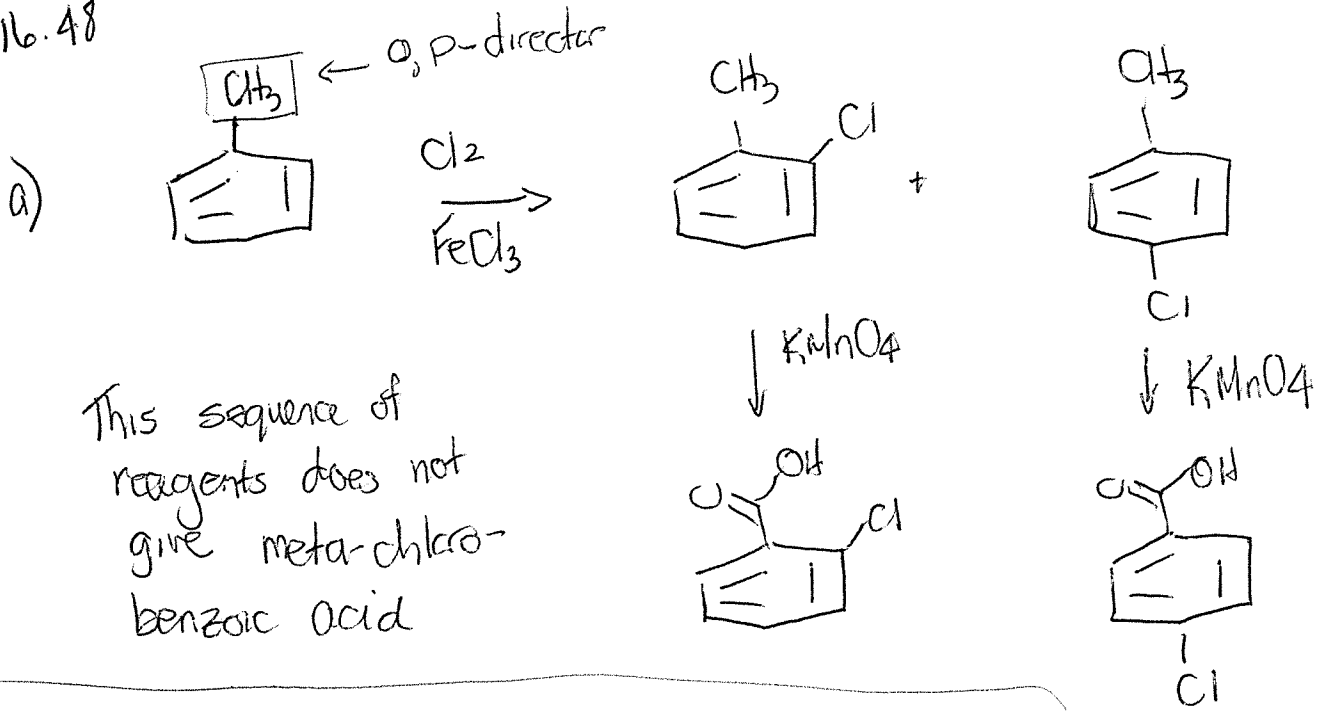 16.48
CH3 ← O, P-director
a)
Cl2
FeCl3
CH3
Cl
+
CH3
Cl
KMnO4
KMnO4
This sequence of
reagents does not
give meta-chloro-
benzoic acid
O OH
Cl
O OH
Cl